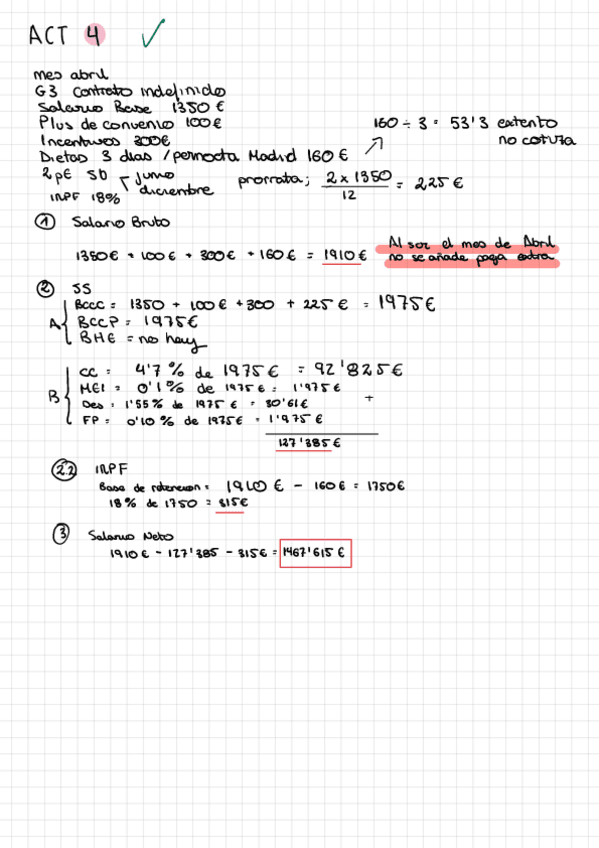 ACT 4
mes abril
G3 Contrato indefinido
Salario Base 1350 €
Plus de convenio 100 €
Incentivos 300€
Dietas 3 dias / pernocta Madrid 160 €
160 ÷ 3 = 53'3 extento
no cotiza
2 pE SB junio
diciembre
IRPF 18%
prorrata; 2 x 1350 / 12 = 225 €
1 Salario Bruto
1350€ + 100€ + 300€ + 160€ = 1910€
Al ser el mes de Abril
no se añade paga extra
2 SS
A BCCC = 1350 + 100€ + 300 + 225€ = 1975€
BCCP = 1975€
BHE = no hay
B CC = 4'7 % de 1975€ = 92'825€
MEI = 0'1% de 1975€ = 1'975€
Des = 1'55% de 1975€ = 30'61€ +
FP = 0'10 % de 1975€ = 1'975€
127'385€
2.2 IRPF
Base de retencion = 1910€ - 160€ = 1750€
18% de 1750 = 315€
3 Salario Neto
1910€ - 127'385 - 315€ = 1467'615€